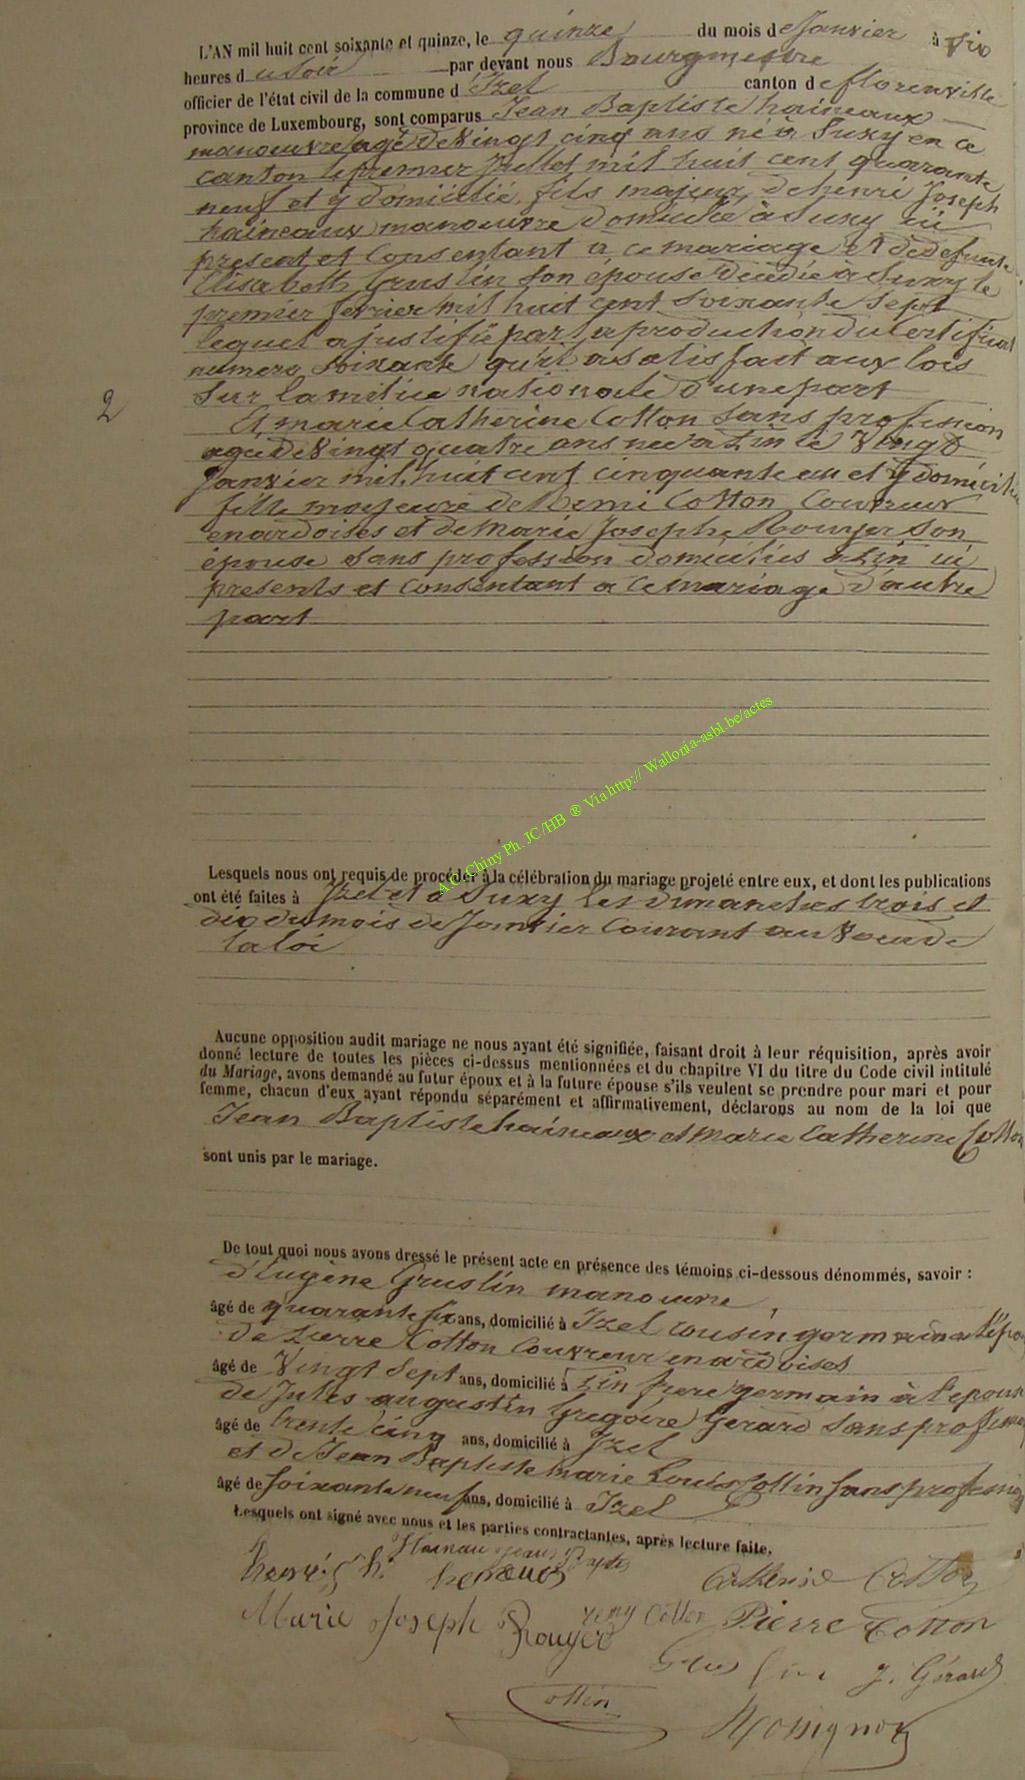 L'AN mil huit cent soixante et quinze, le quinze du mois de Janvier à six
heures du Soir par devant nous Bourgmestre
officier de l'état civil de la commune d'Izel canton de florenville
province de Luxembourg, sont comparus Jean Baptiste haineaux
manoeuvre agé de Vingt cinq ans né à Suxy en ce
canton le premier Juillet mil huit cent quarante
neuf et y domicilié, fils majeur de henri Joseph
haineaux manouvre domicilié à Suxy ici
present et consentant a ce mariage et de defunte
Elisabeth Gruslin son épouse décédée à Suxy le
premier fevrier mil huit cent soixante sept
lequel a justifié par la production du certificat
numero soixante qu'il a satisfait aux lois
Sur la milice nationale d'une part
2
Et marie Catherine Cotton sans profession
agée de Vingt quatre ans née a Pin le Vingt
Janvier mil huit cent cinquante un et y domicilié
fille majeure de Remi Cotton Couvreur
en ardoises et de Marie Josephe Rouyer son
épouse sans profession domiciliés a Pin ici
presents et consentant a ce mariage d'autre
part
A.C. Chiny Ph. JC/HB ® Via http:// Wallonia-asbl.be/actes
Lesquels nous ont requis de procéder à la célébration du mariage projeté entre eux, et dont les publications
ont été faites à Izel et à Suxy les dimanches trois et
dix du mois de Janvier courant au Voeu de
la loi
Aucune opposition audit mariage ne nous ayant été signifiée, faisant droit à leur réquisition, après avoir
donné lecture de toutes les pièces ci-dessus mentionnées et du chapitre VI du titre du Code civil intitulé
du Mariage, avons demandé au futur époux et à la future épouse s'ils veulent se prendre pour mari et pour
femme, chacun d'eux ayant répondu séparément et affirmativement, déclarons au nom de la loi que
Jean Baptiste haineaux et Marie Catherine Cotton
sont unis par le mariage.
De tout quoi nous avons dressé le présent acte en présence des témoins ci-dessous dénommés, savoir :
d'Eugène Gruslin manouvre,
âgé de quarante six ans, domicilié à Izel cousin germain a l'épo
de Pierre Cotton Couvreur en ardoises
âgé de Vingt Sept ans, domicilié à Pin frere germain à l'épouse
de Jules augustin Gregoire Gerard Sans profession
âgé de trente cinq ans, domicilié à Izel
et de Jean Baptiste marie Louis Collin Sans profession
âgé de Soixante neuf ans, domicilié à Izel
Lesquels ont signé avec nous et les parties contractantes, après lecture faite.
Hainau Jean Bapte
Catherine Cotton
Marie Joseph Rouyer remy Cotton Pierre Cotton
Gruslin J. Gérard
Collin
Rossignon